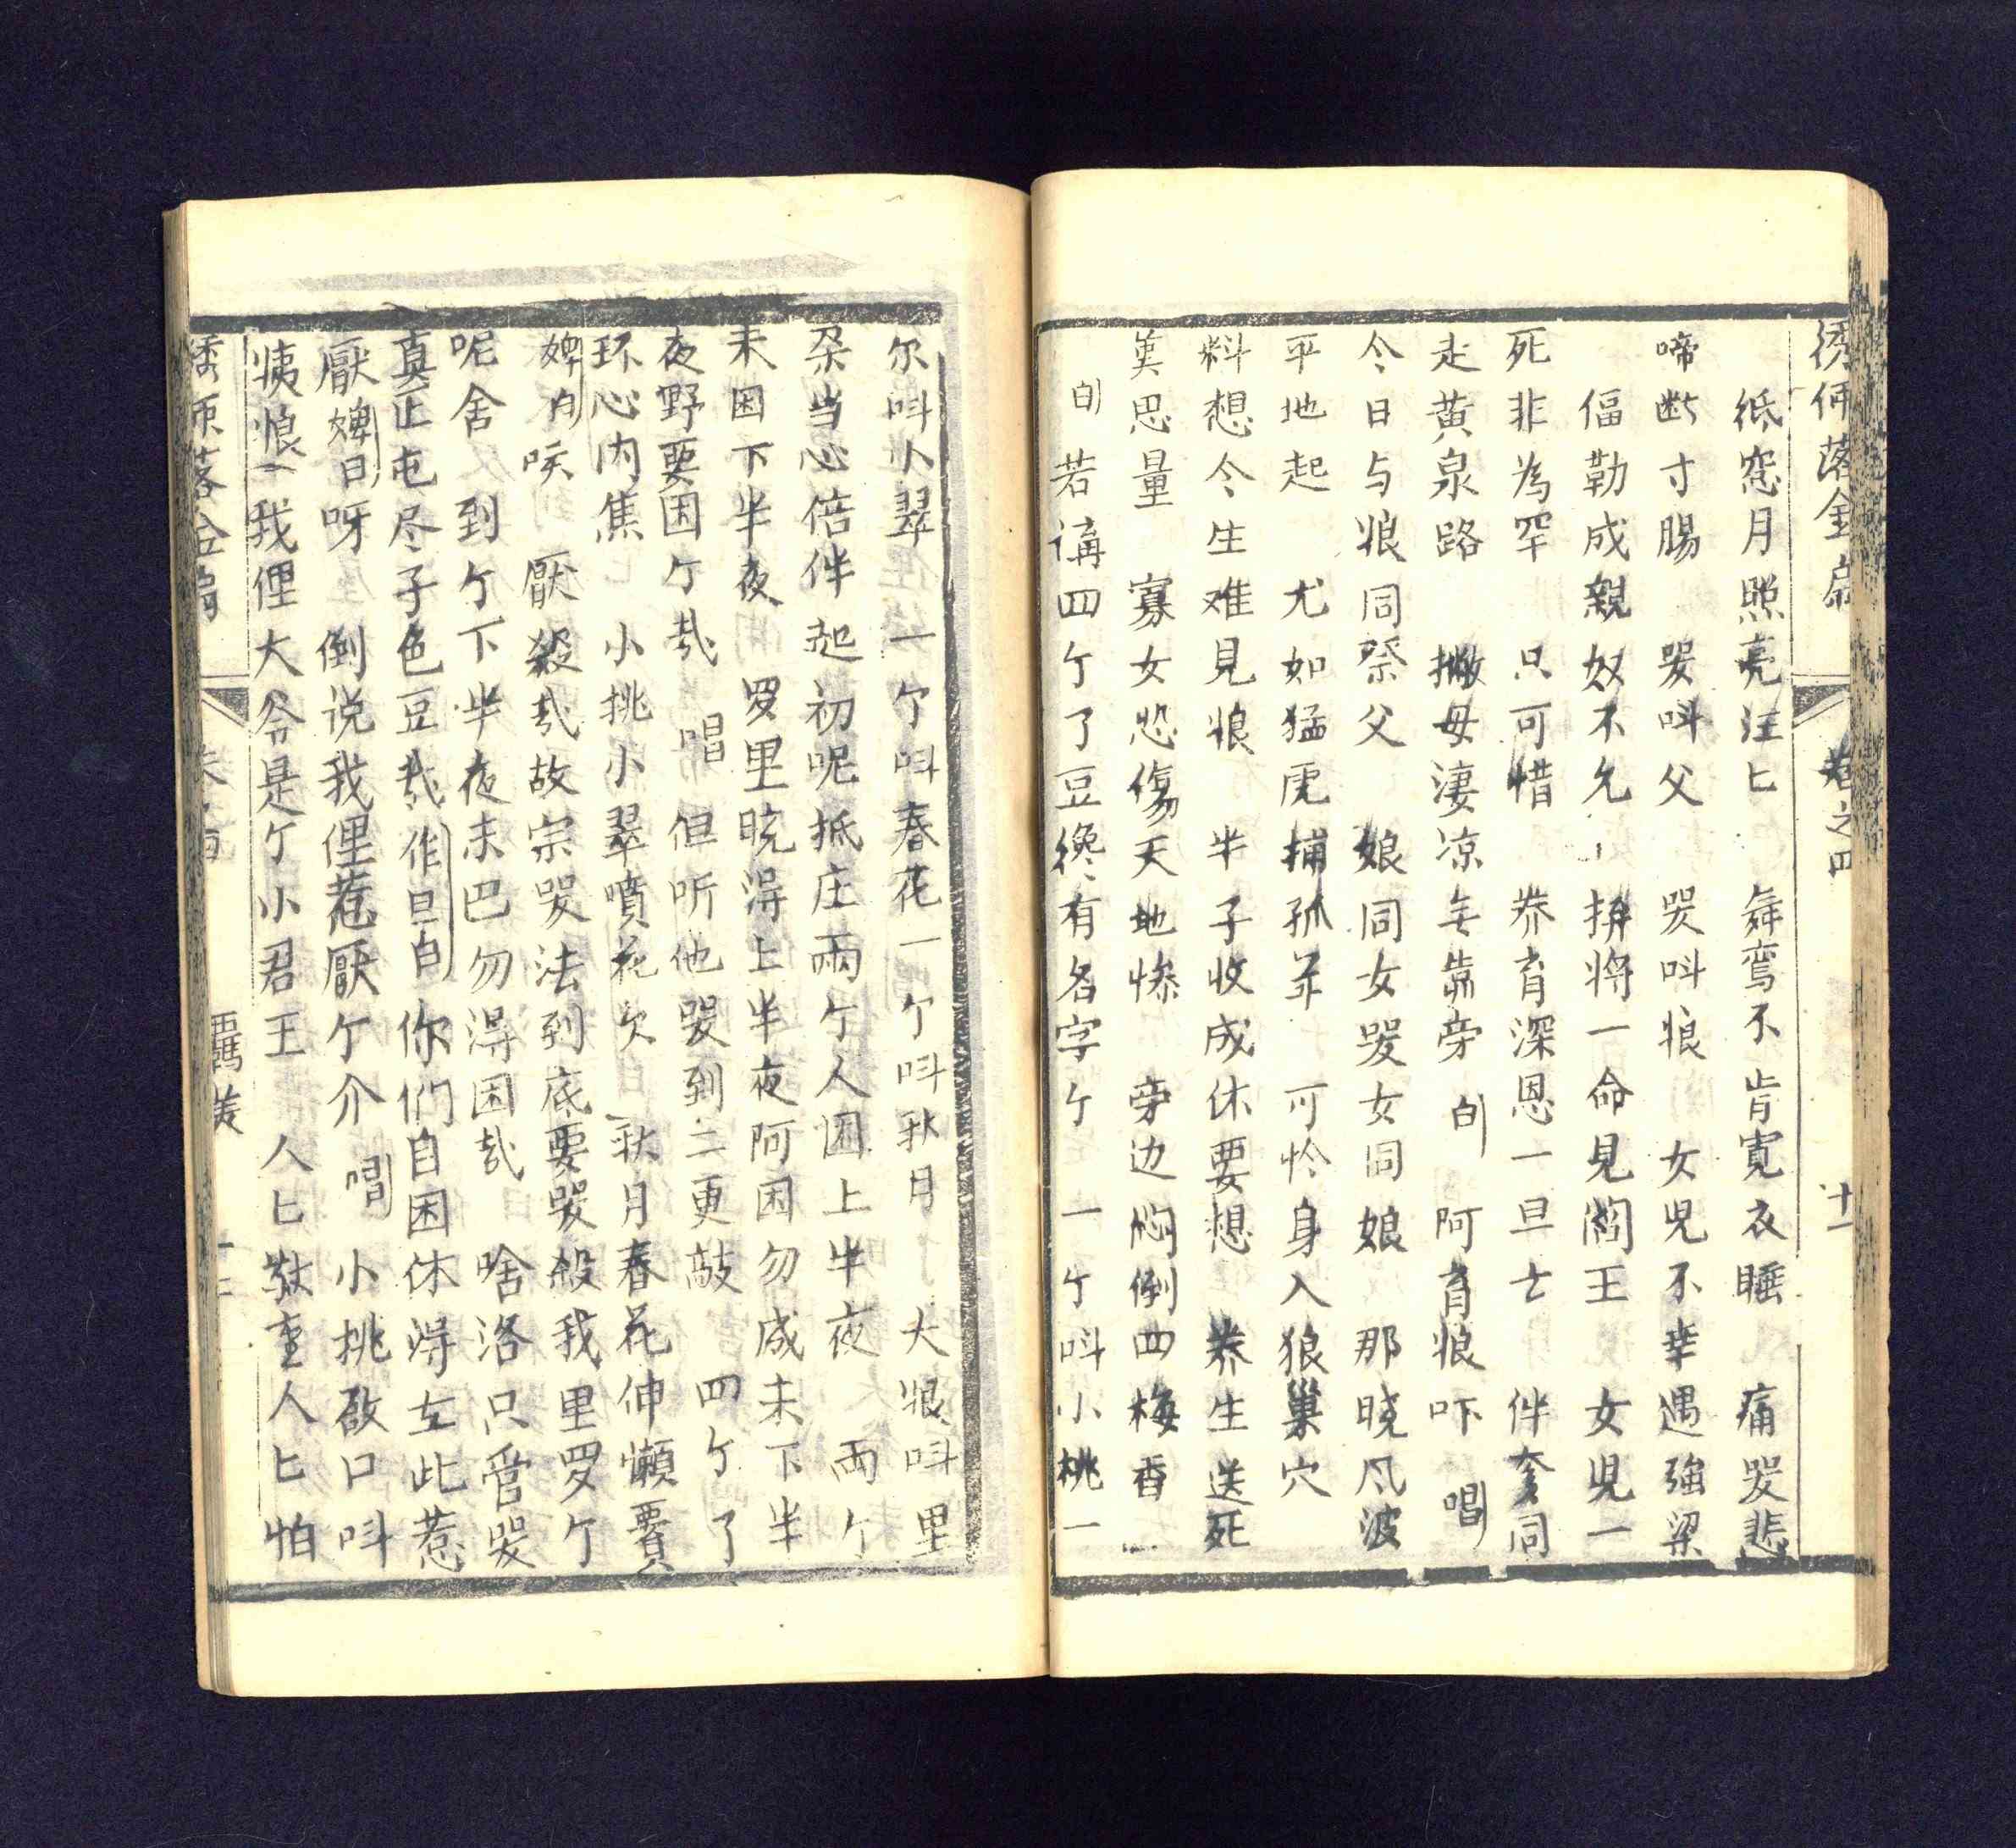 绣何落金扇 卷之四 十一
纸窓月照亮汪匕 舜鸾不肯寛衣睡 痛哭悲
啼断寸腸 哭呌父 哭呌娘 女児不幸遇強梁
偪勒成親奴不允 拚将一命見閻王 女児一
死非為罕 只可惜 养育深恩一旦亡 伴奎同
走黄泉路 撇母淒凉無靠旁 白 阿育娘吓 唱
今日与娘同祭父 娘同女哭女同娘 那晓风波
平地起 尤如猛虎捕孤羊 可怜身入狼巢穴
料想今生难見娘 半子收成休要想 养生送死
莫思量 寡女怨傷天地惨 旁边闷倒四梅香
白 若講四个了豆纔有名字个 一个呌小桃一
尔呌小翠 一个呌春花一个呌秋月 大娘呌里
朶当心倍伴 起初呢抵庄兩个人困上半夜 兩个
来困下半夜 罗里晓淂上半夜阿困勿成未下半
夜野要困个哉 唱 但听他哭到二更敲 四个了
环心内焦 小挑小翠噴花欠 秋月春花伸懶賽
婢白 唉 厭殺哉故宗哭法到底要哭殺我里罗个
呢舍 到个下半夜未巴勿淂困哉 啥洛只管哭
真正屯尽子色豆哉作旦白 你們自困休淂在此惹
厭婢白呀 倒说我俚惹厭个介 唱 小挑啟口呌
姨娘 我俚大爷是个小君王 人匕敬重人匕怕